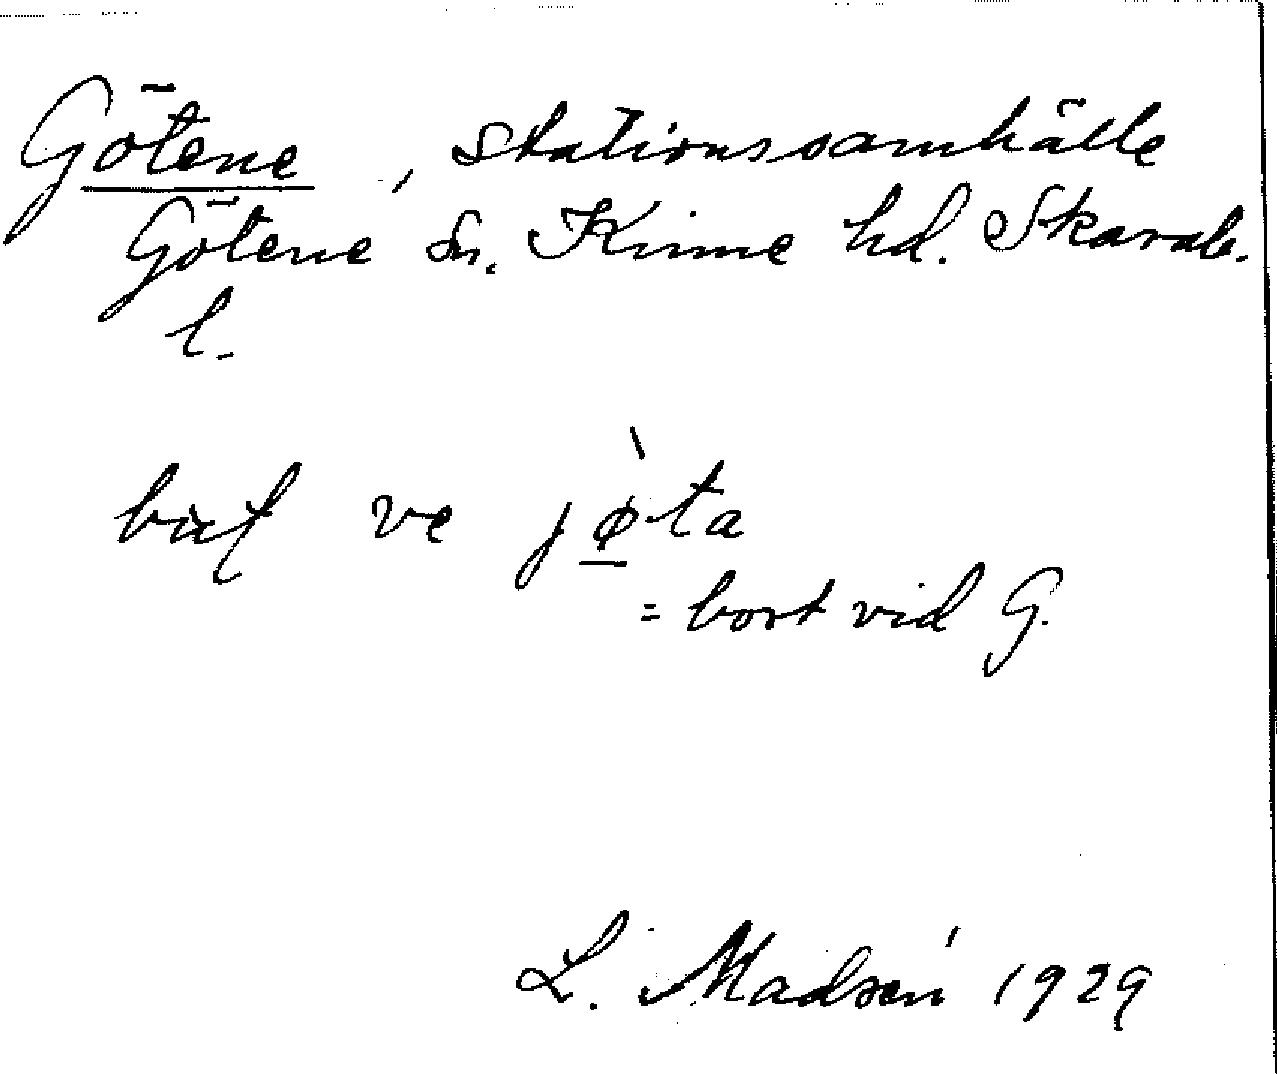 Götene, Stationssamhälle
Götene Sn. Kinne hd. Skarab.
l.
ve jø̱̀ta
= bort vid G.
L. Madsén 1929